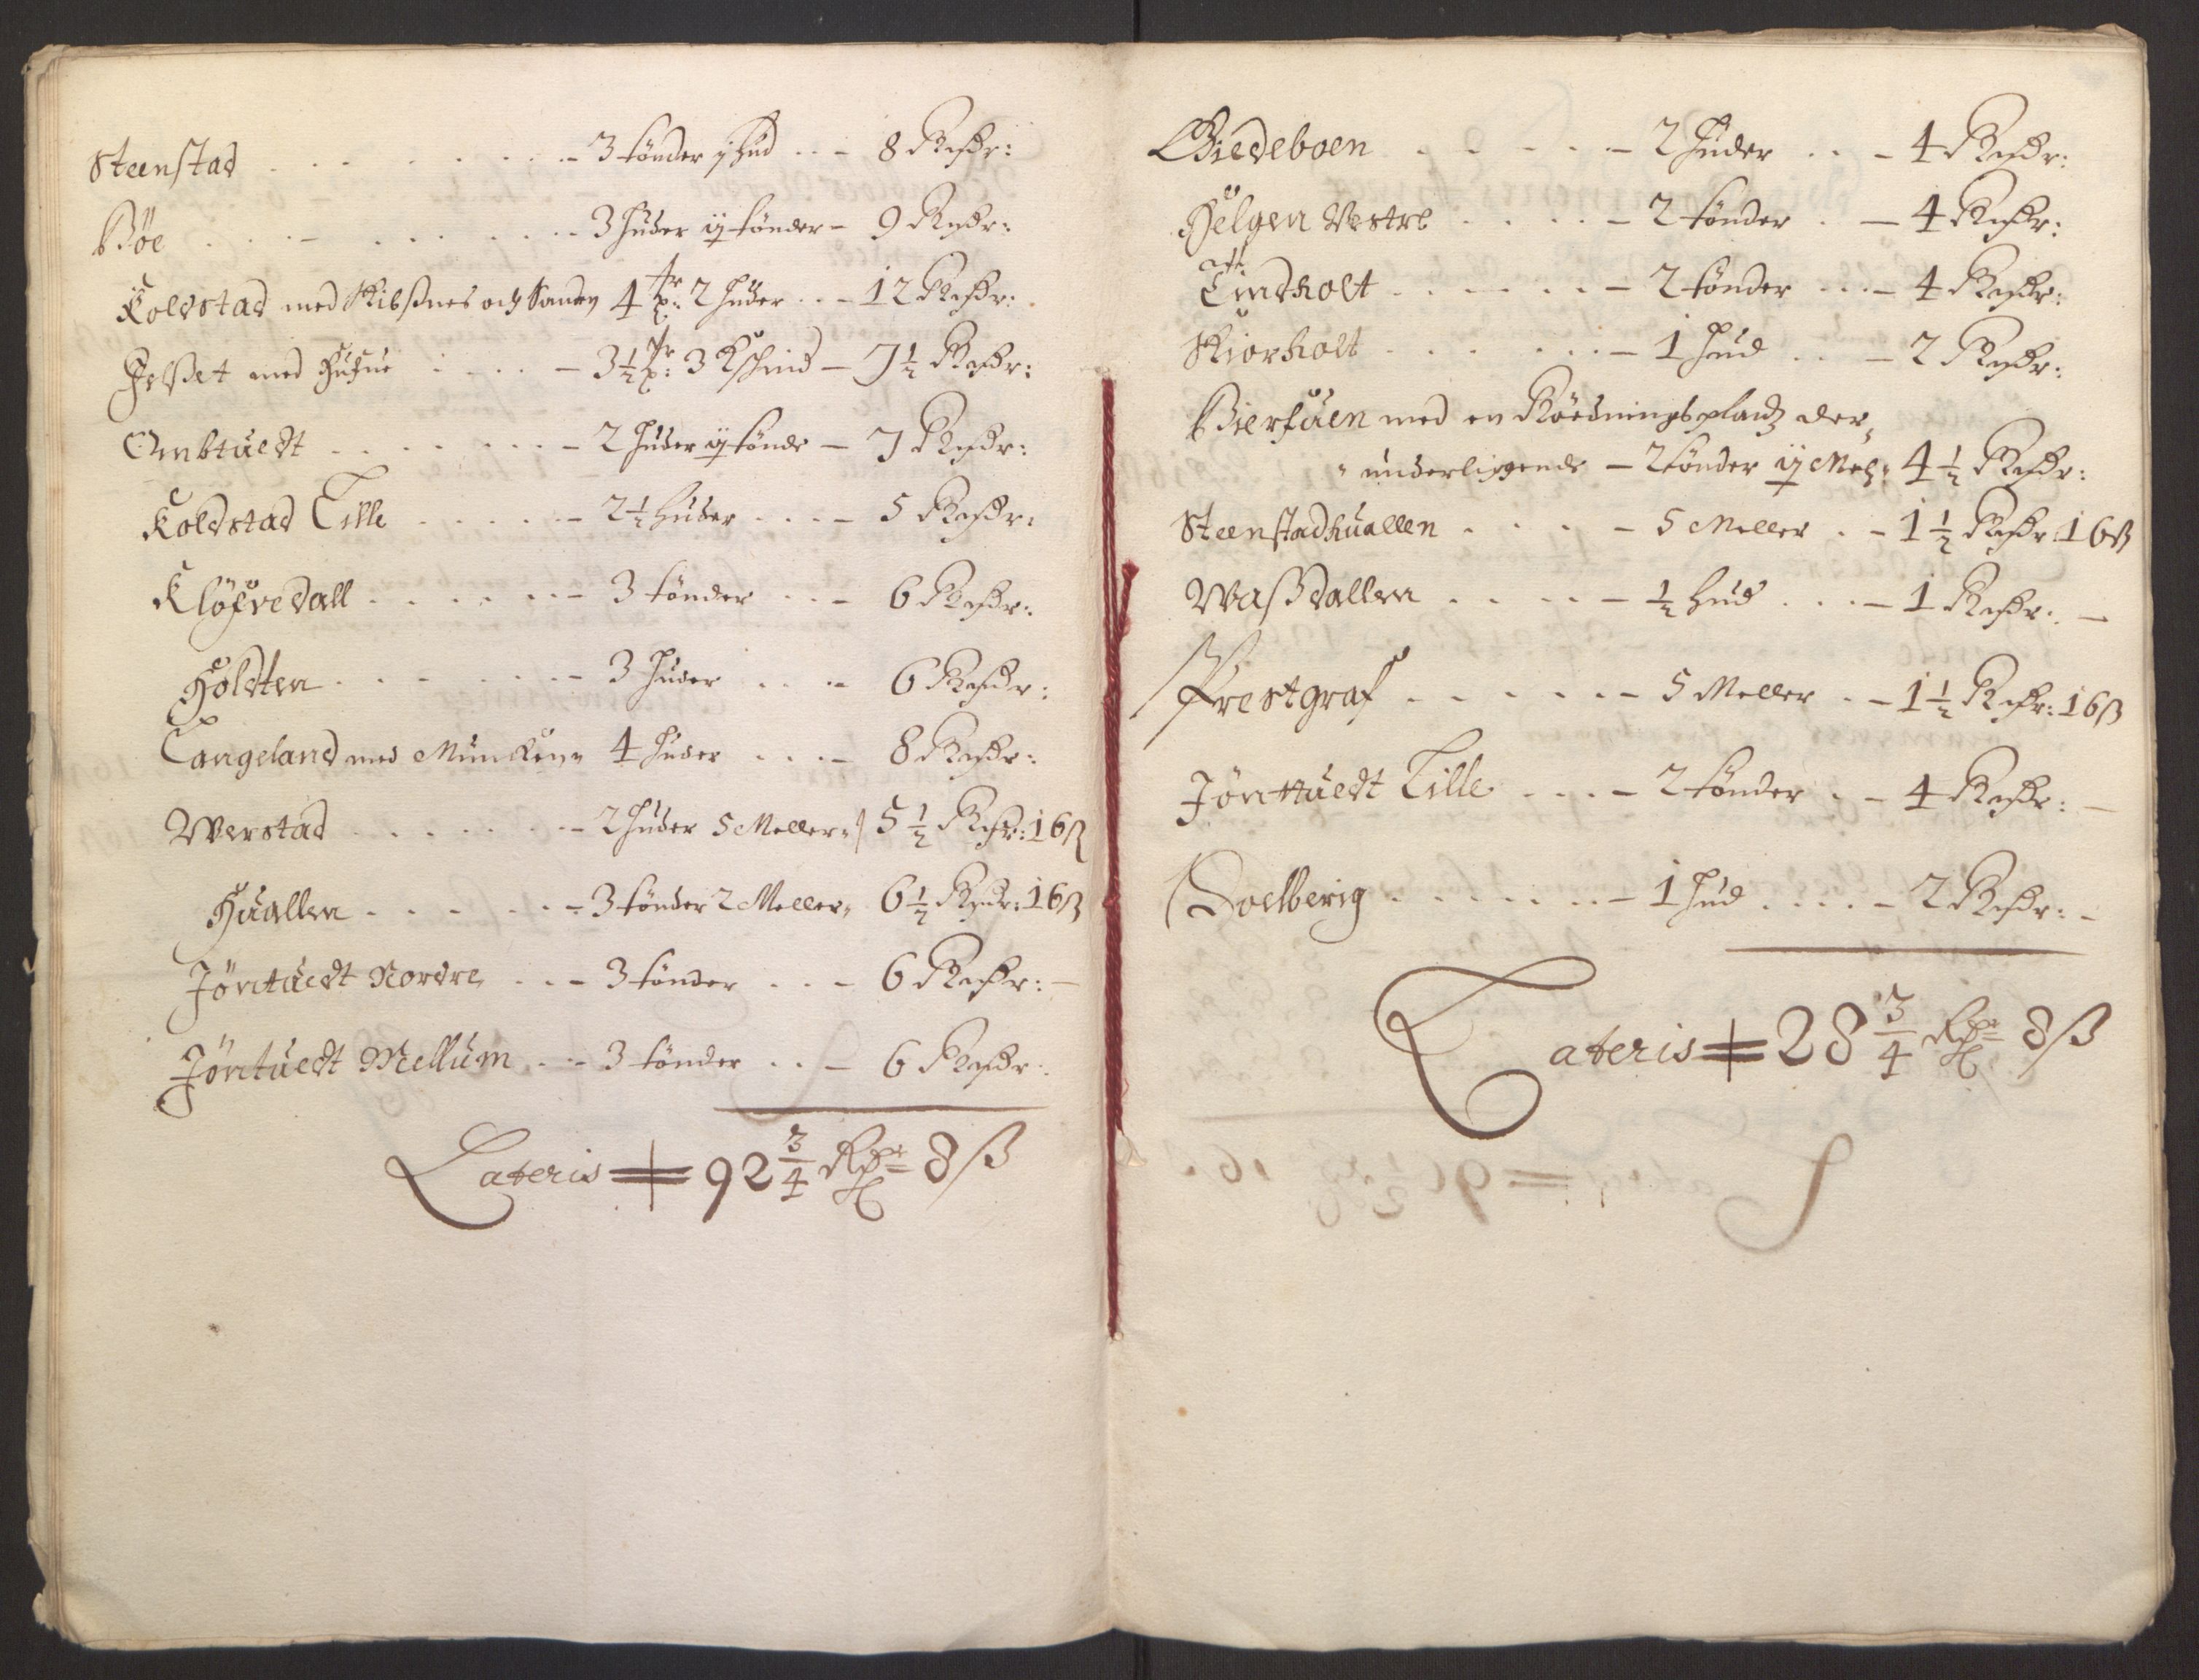 Steenstad . . . . . . . - 3 tönder j hud . . - 8 Rixdr:
Böe . . . - . . . . . . - 3 huder ij tönder - 9 Rixdr:
Koldstad med Skibßnes och Sanden 4 tr: 2 huder . . - 12 Rixdr:
med . . . . - 3½ tr: 3 Kschind - 7½ Rixdr:
Ombtuedt . . . . . . - 2 huder ij tönde - 7 Rixdr:
Koldstad Lille . . . . . - 2½ huder . . . - 5 Rixdr:
Klöfvedall . . . . . . - 3 tönder . . - 6 Rixdr:
Holdten . . . . . . . - 3 huder . . . - 6 Rixdr:
Langeland med Muncken 4 huder . . . - 8 Rixdr:
Werstad . . . . . . . - 2 huder 5 Meller 5½ Rixdr: 16 ß
Huallen . . . . . . - 3 tönder 2 Meller 6½ Rixdr: 16 ß
Jöntuedt Nordre . . - 3 tönder . . . - 6 Rixdr: -
Jöntuedt Mellum . . - 3 tönder . . - 6 Rixdr:
Lateris = 92¾ Rdr 8 ß
Giedeboen . . . . . - 2 huder . . - 4 Rixdr:
Helgen Vestre . . . . - 2 tönder . - 4 Rixdr:
Lindholt . . . . . . - 2 tönder . . - 4 Rixdr:
Skiorholt . . . . . . - 1 hud . . - 2 Rixdr:
Bierfuen med en Rödningsplandz der,
underliggende - 2 tönder ij Mel: 4½ Rixdr:
Steenstadhuallen . . . . - 5 Meller . - 1½ Rixdr 16 ß
Waßdallen . . . . - ½ hud . . . - 1 Rixdr: -
Prestgraf . . . . . . - 5 Meller . . - 1½ Rixdr: 16 ß
Jönttuedt Lille . . . - 2 tönder . - 4 Rixdr: -
Doelberig . . . . . . - 1 hud . . . . - 2 Rixdr: -
Lateris = 28¾ Rdr 8 ß